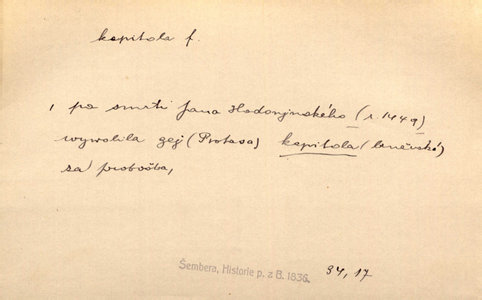 kapitola f.
, po smrti Jana Hodonjnského (r 1449)
wywolila gej (Protasa) kapitola (brněnská)
za probošta,
Šembera, Historie p. z B. 1836. 34, 17